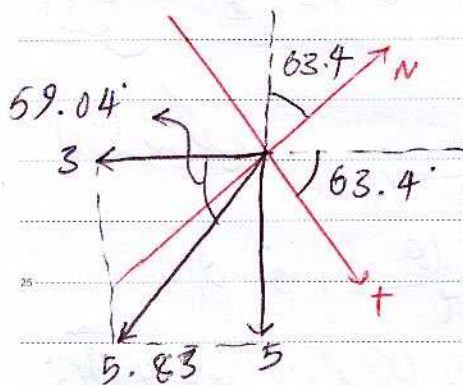 63.4
N
59.04°
3
63.4°
25
t
5.83
5